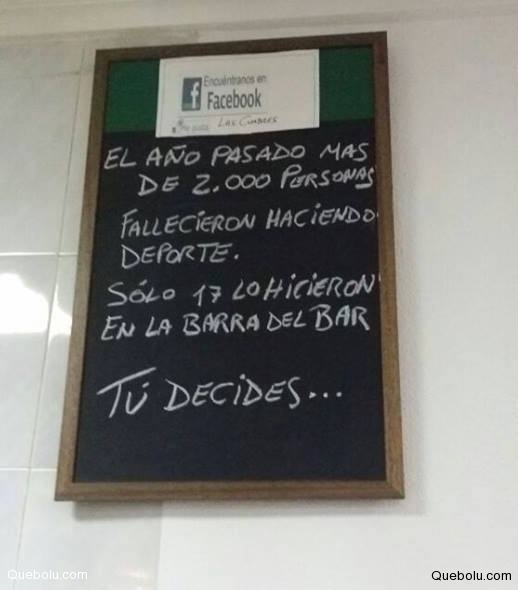 Encuéntranos en
Facebook
LAS CUMBRES
EL AÑO PASADO MAS
DE 2.000 PERSONAS
FALLECIERON HACIENDO
DEPORTE.
SÓLO 17 LO HICIERON
EN LA BARRA DEL BAR
TÚ DECIDES...
Quebolu.com
Quebolu.com